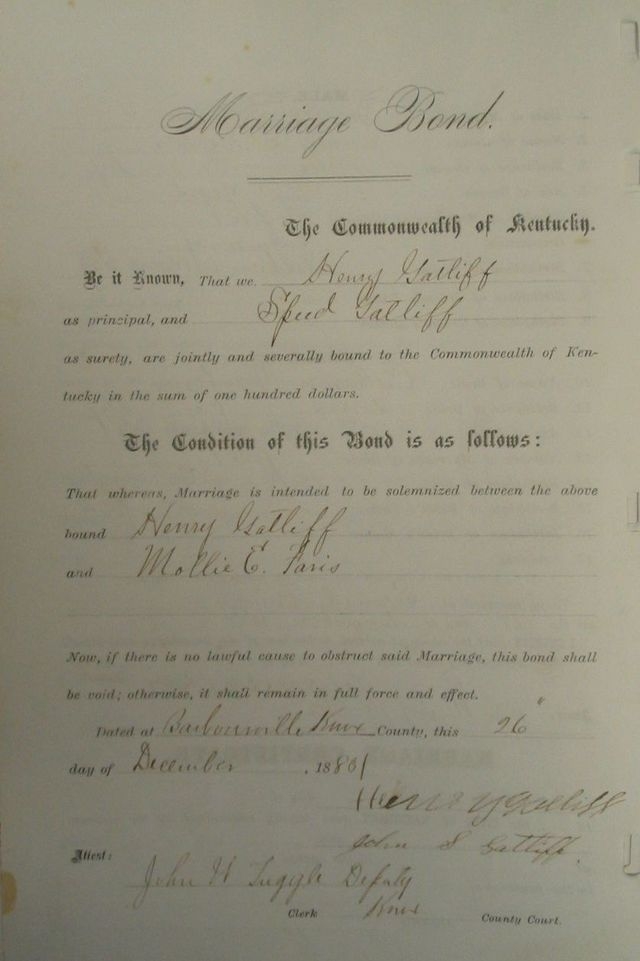 Marriage Bond.
The Commonwealth of Kentucky.
Be it Known, That we Henry Gatliff
as principal, and Speed Gatliff
as surety, are jointly and severally bound to the Commonwealth of Ken-
tucky in the sum of one hundred dollars.
The Condition of this Bond is as follows:
That whereas, Marriage is intended to be solemnized between the above
bound Henry Gatliff
and Mollie E. Faris
Now, if there is no lawful cause to obstruct said Marriage, this bond shall
be void; otherwise, it shall remain in full force and effect.
Dated at Barbourville Knox County, this 26"
day of December, 1881
Henry Gatliff
John S Gatliff.
Attest:
John H Tuggle Deputy
Clerk Knox County Court.